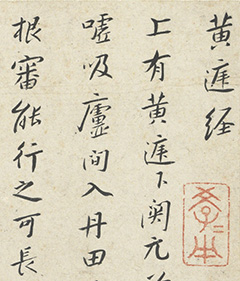 黄庭经
上有黄庭下関元
嘘吸廬間入丹田
根審能行之可長